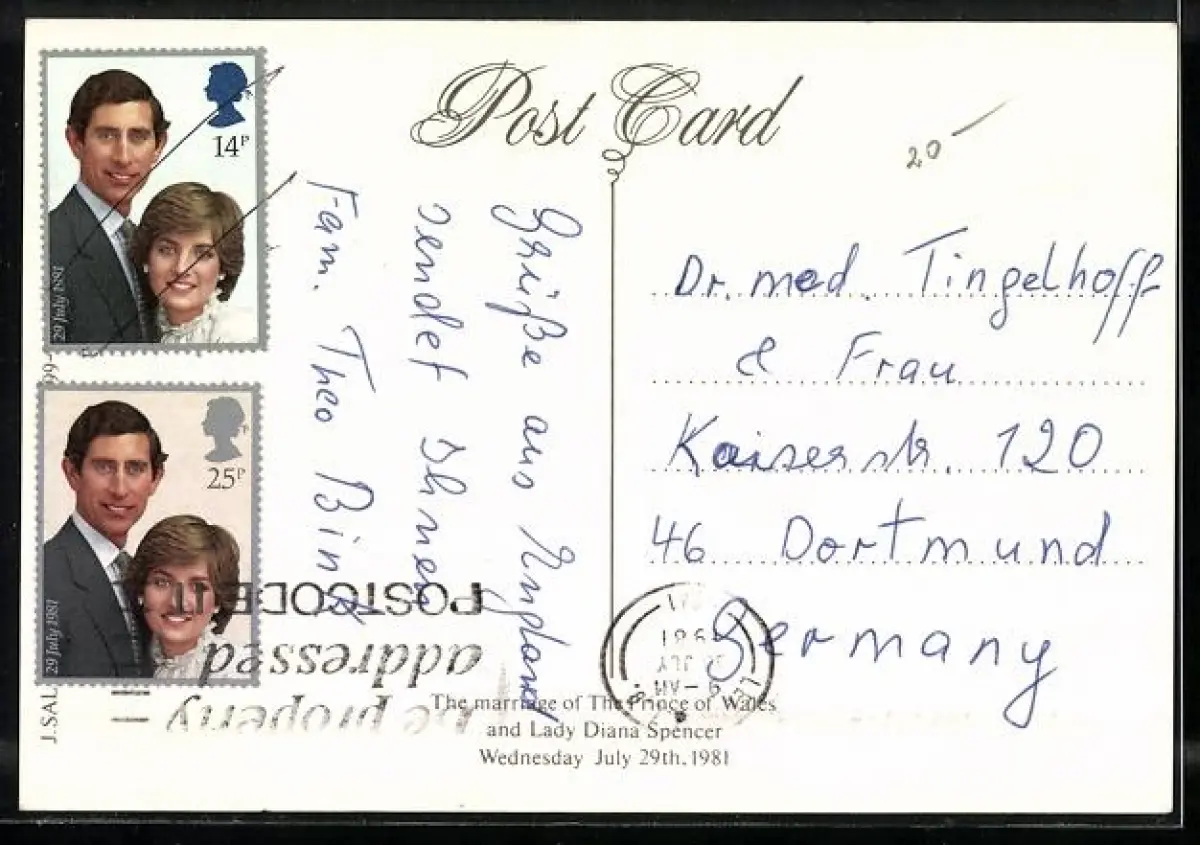 Post Card
14P
29 July 1981
25P
29 July 1981
20
Grüße aus England
sendet Ihnen
Fam. Theo Bink
Dr. med. Tingelhoff
& Frau
Kaiserstr. 120
46 Dortmund
Germany
be properly
addressed
POSTCODE IT
9-AM
JLY
1981
The marriage of The Prince of Wales
and Lady Diana Spencer
Wednesday July 29th, 1981
J.SAL